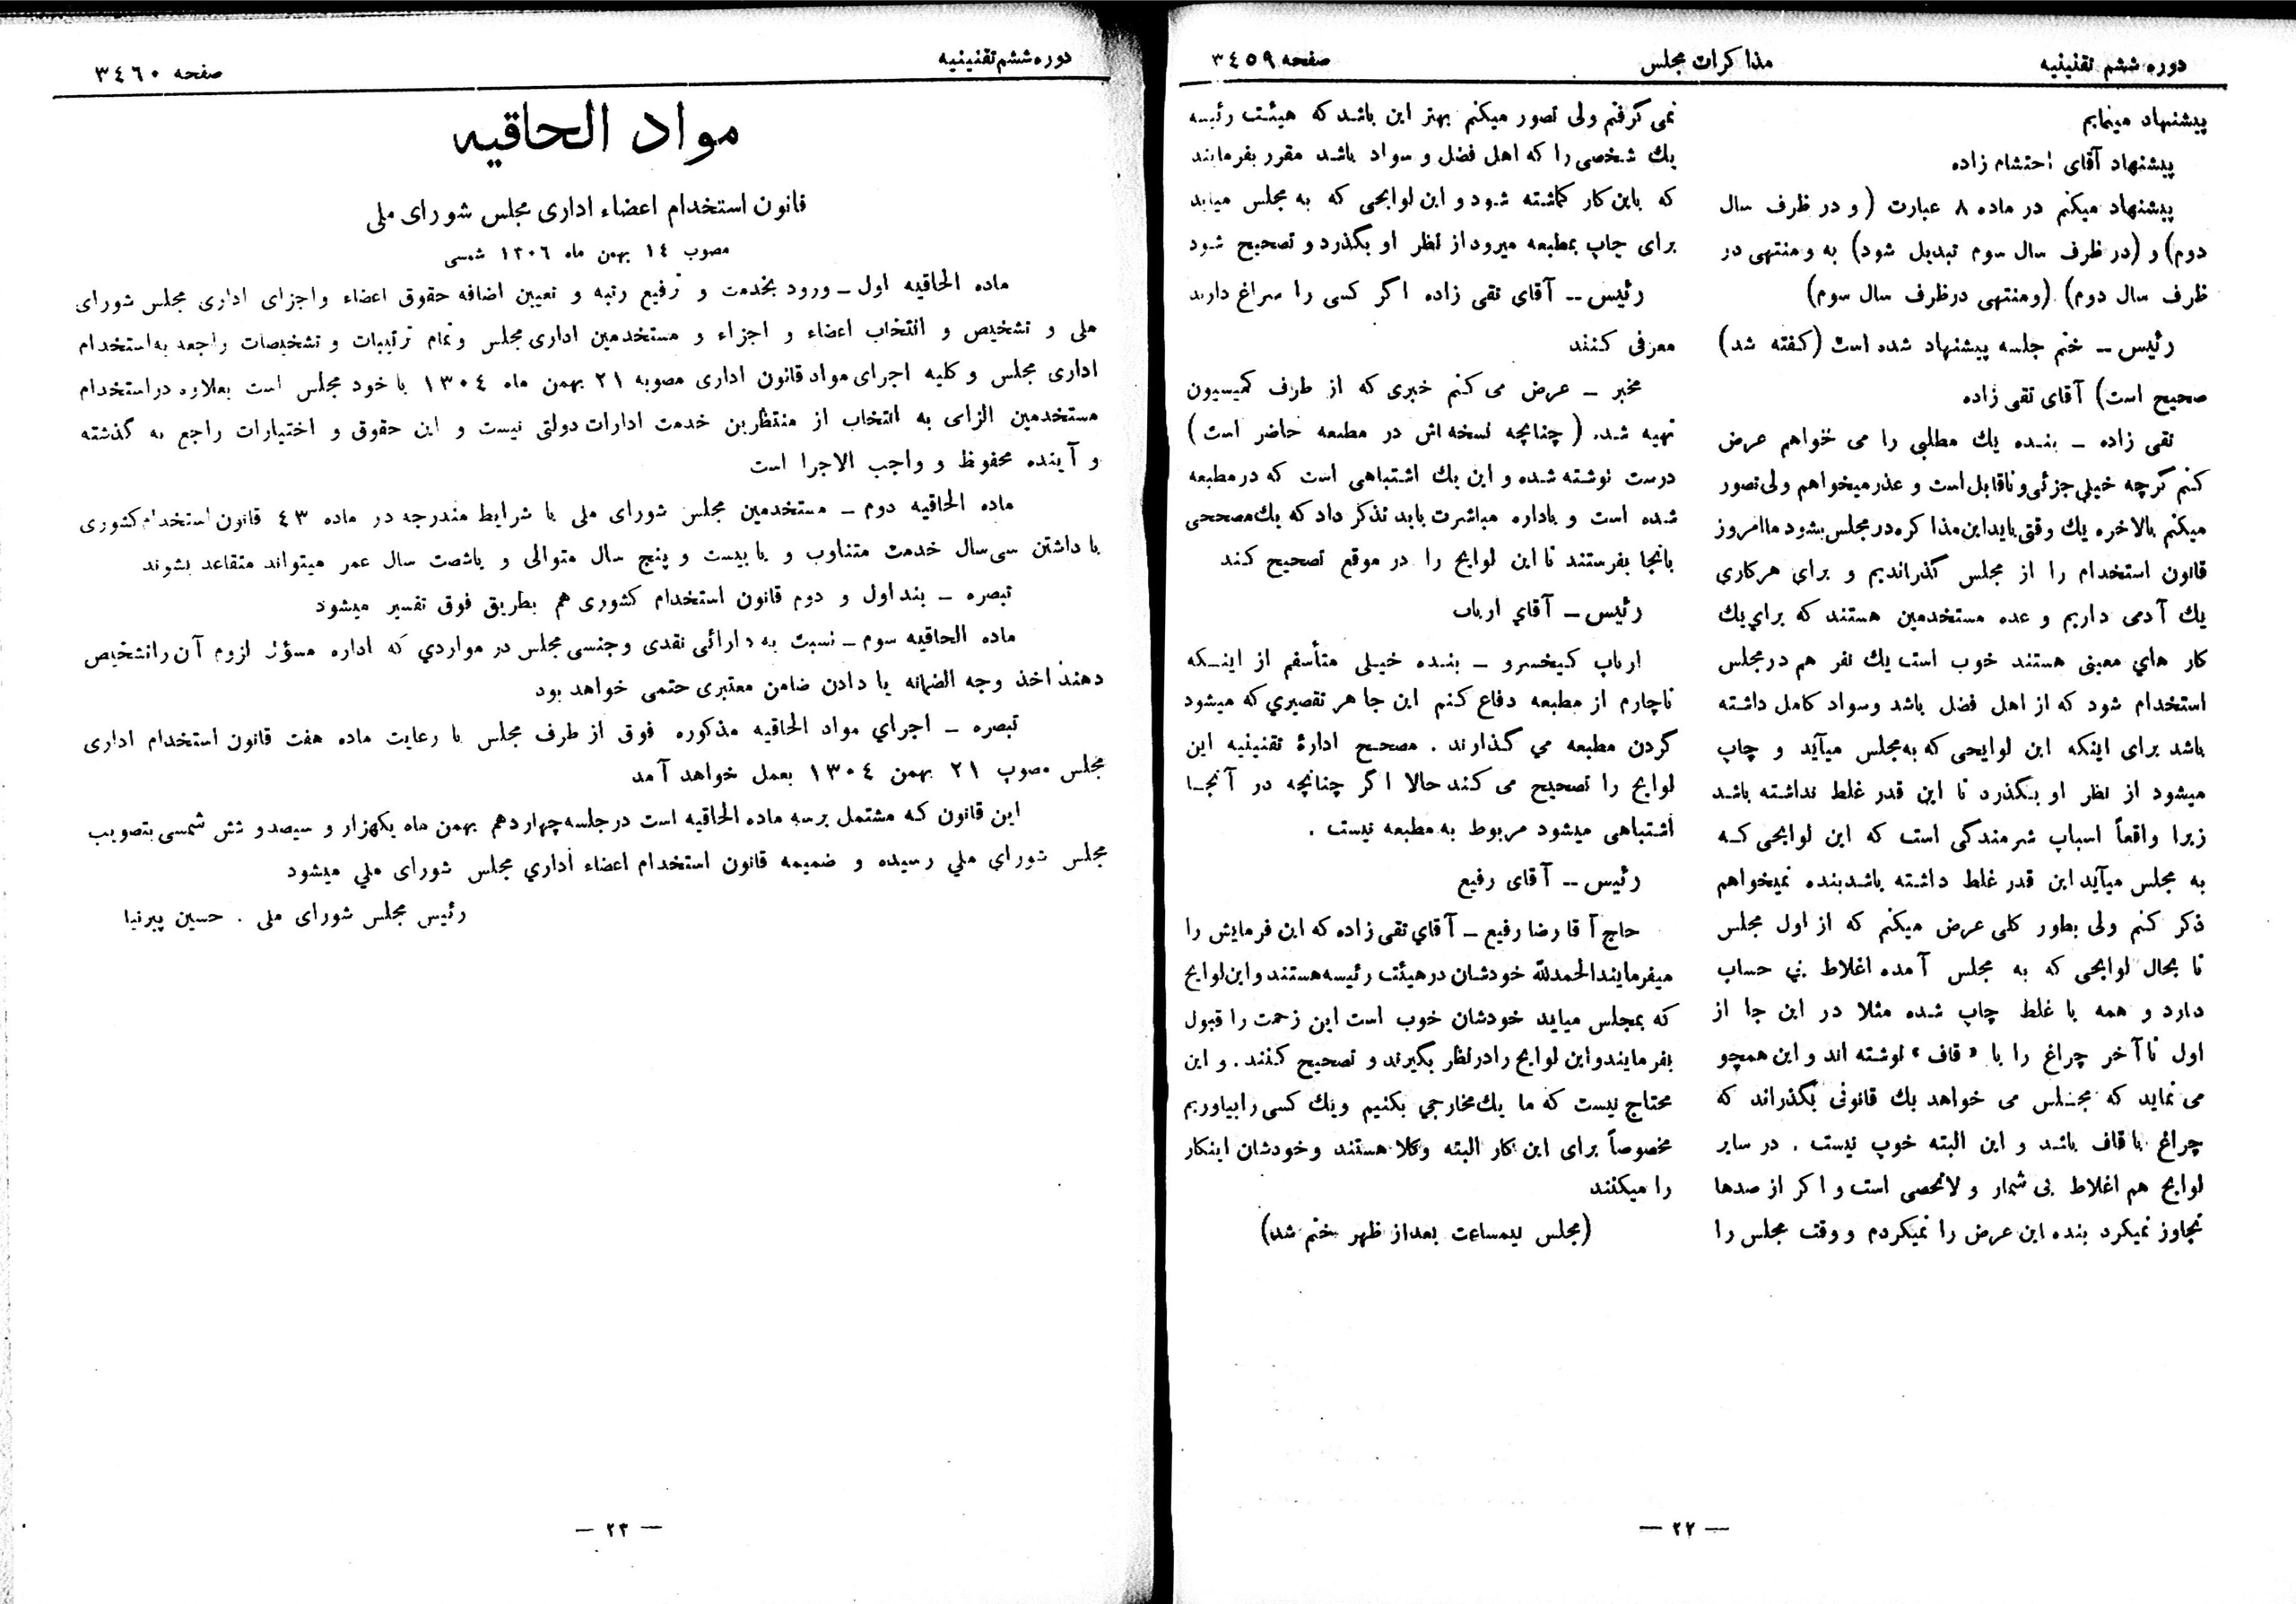 دوره ششم تقنینیه
مذاکرات مجلس
صفحه ۳٤٥۹
پیشنهاد مینمایم
پیشنهاد آقای احتشام زاده
پیشنهاد میکنم در ماده ۸ عبارت (و در ظرف سال
دوم) و (در ظرف سال سوم تبدیل شود) به و منتهی در
ظرف سال دوم) (ومنتهی درظرف سال سوم)
رئیس ــ ختم جلسه پیشنهاد شده است (گفته شد)
صحیح است) آقای تقی زاده
تقی زاده ــ بنده یك مطلبی را می خواهم عرض
کنم گرچه خیلي جزئی و ناقابل است و عذر میخواهم ولی تصور
میکنم بالاخره یك وقتی باید این مذاکره در مجلس بشود ما امروز
قانون استخدام را از مجلس گذراندیم و برای هرکاری
یك آدمی داریم و عده مستخدمین هستند که برای یك
کار هاي معینی هستند خوب است یك نفر هم در مجلس
استخدام شود که از اهل فضل باشد وسواد کامل داشته
باشد برای اینکه این لوایحی که به مجلس میآید و چاپ
میشود از نظر او بگذرد تا این قدر غلط نداشته باشد
زیرا واقعاً اسباب شرمندگی است که این لوایحی کـه
به مجلس میآید این قدر غلط داشته باشد بنده نمیخواهم
ذکر کنم ولی بطور کلی عرض میکنم که از اول مجلس
تا بحال لوایحی که به مجلس آمده اغلاط بي حساب
دارد و همه با غلط چاپ شده مثلا در این جا از
اول تا آخر چراغ را با «قاف» نوشته اند و این همچو
می نماید که مجلس می خواهد یك قانونی بگذراند که
چراغ با قاف باشد و این البته خوب نیست . در سایر
لوایح هم اغلاط بی شمار و لاتحصی است و اگر از صدها
تجاوز نمیکرد بنده این عرض را نمیکردم و وقت مجلس را
نمی گرفتم ولی تصور میکنم بهتر این باشد که هیئت رئیسه
یك شخصی را که اهل فضل و سواد باشد مقرر بفرمایند
که باین کار گماشته شود و این لوایحی که به مجلس میاید
برای چاپ بمطبعه میرود از نظر او بگذرد و تصحیح شود
رئیس ــ آقای تقی زاده اگر کسی را سراغ دارند
معرفی کنند
مخبر ــ عرض می کنم خبری که از طرف کمیسیون
تهیه شده (چنانچه نسخه اش در مطبعه حاضر است)
درست نوشته شده و این یك اشتباهی است که در مطبعه
شده است و باداره مباشرت باید تذکر داد که یك مصححی
بانجا بفرستند تا این لوایح را در موقع تصحیح کند
رئیس ــ آقاي ارباب
ارباب کیخسرو ــ بنده خیلی متأسفم از اینـکه
ناچارم از مطبعه دفاع کنم این جا هر تقصیري که میشود
گردن مطبعه مي گذارند . مصحح ادارۀ تقنینیه این
لوایح را تصحیح می کند حالا اگر چنانچه در آنجـا
اشتباهی میشود مربوط به مطبعه نیست .
رئیس ــ آقای رفیع
حاج آقا رضا رفیع ــ آقاي تقی زاده که این فرمایش را
میفرمایند الحمدلله خودشان در هیئت رئیسه هستند و این لوایح
که بمجلس میاید خودشان خوب است این زحمت را قبول
بفرمایند و این لوایح را در نظر بگیرند و تصحیح کنند . و این
محتاج نیست که ما یك مخارجي بکنیم و یك کسی را بیاوریم
مخصوصاً برای این کار البته وکلا هستند و خودشان اینکار
را میکنند
(مجلس نیمساعت بعد از ظهر ختم شد)
— ۲۲ —
دوره ششم تقنینیه
صفحه ۳٤٦۰
مواد الحاقیه
قانون استخدام اعضاء اداری مجلس شورای ملی
مصوب ۱٤ بهمن ماه ۱۳۰٦ شمسی
ماده الحاقیه اول ــ ورود بخدمت و ترفیع رتبه و تعیین اضافه حقوق اعضاء و اجزای اداری مجلس شورای
ملی و تشخیص و انتخاب اعضاء و اجزاء و مستخدمین اداری مجلس و تمام ترتیبات و تشخیصات راجعه به استخدام
اداری مجلس و کلیه اجرای مواد قانون اداری مصوبه ۲۱ بهمن ماه ۱۳۰٤ با خود مجلس است بعلاوه در استخدام
مستخدمین الزامی به انتخاب از منتظرین خدمت ادارات دولتی نیست و این حقوق و اختیارات راجع به گذشته
و آینده محفوظ و واجب الاجرا است
ماده الحاقیه دوم ــ مستخدمین مجلس شورای ملی با شرایط مندرجه در ماده ٤۳ قانون استخدام کشوری
با داشتن سی سال خدمت متناوب و یا بیست و پنج سال متوالی و یا شصت سال عمر میتواند متقاعد بشوند
تبصره ــ بند اول و دوم قانون استخدام کشوری هم بطریق فوق تفسیر میشود
ماده الحاقیه سوم ــ نسبت به دارائی نقدی و جنسی مجلس در مواردي که اداره مسؤل لزوم آن را تشخیص
دهند اخذ وجه الضمانه یا دادن ضامن معتبری حتمی خواهد بود
تبصره ــ اجراي مواد الحاقیه مذکوره فوق از طرف مجلس با رعایت ماده هفت قانون استخدام اداری
مجلس مصوب ۲۱ بهمن ۱۳۰٤ بعمل خواهد آمد
این قانون که مشتمل بر سه ماده الحاقیه است در جلسه چهاردهم بهمن ماه یکهزار و سیصد و شش شمسی بتصویب
مجلس شورای ملي رسیده و ضمیمه قانون استخدام اعضاء اداري مجلس شورای ملي میشود
رئیس مجلس شورای ملی . حسین پیرنیا
— ۲۳ —